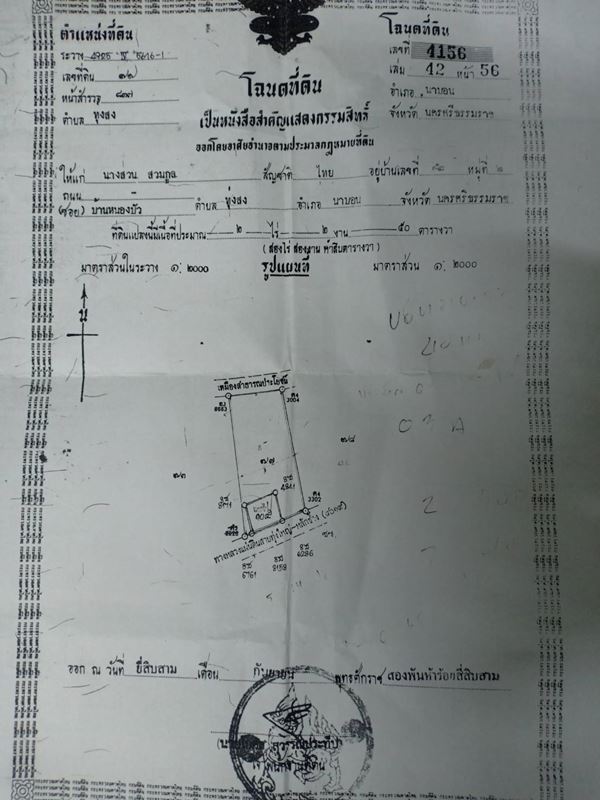 ตำแหน่งที่ดิน
ระวาง 4925 IV 5616-1
เลขที่ดิน ๗๖
หน้าสำรวจ ๘๓๗
ตำบล ทุ่งสง
โฉนดที่ดิน
เลขที่ 4156
เล่ม 42 หน้า 56
อำเภอ นาบอน
จังหวัด นครศรีธรรมราช
โฉนดที่ดิน
เป็นหนังสือสำคัญแสดงกรรมสิทธิ์
ออกโดยอาศัยอำนาจตามประมวลกฎหมายที่ดิน
ให้แก่ นางส่วน สวนกูล สัญชาติ ไทย อยู่บ้านเลขที่ หมู่ที่ ๒
ถนน
(ซอย) บ้านหนองบัว ตำบล ทุ่งสง อำเภอ นาบอน จังหวัด นครศรีธรรมราช
ที่ดินแปลงนี้มีเนื้อที่ประมาณ ๒ ไร่ ๒ งาน ๕๐ ตารางวา
(สองไร่ สองงาน ห้าสิบตารางวา)
มาตราส่วนในระวาง ๑: ๒๐๐๐ รูปแผนที่ มาตราส่วน ๑: ๒๐๐๐
น
เหมืองสาธารณประโยชน์
๗๗
๗๘
๗๓
4841
3302
ทางหลวงแผ่นดินสายทุ่งใหญ่-หลักช้าง
6761
3159
4286
ออก ณ วันที่ ยี่สิบสาม เดือน กันยายน พุทธศักราช สองพันห้าร้อยสี่สิบสาม